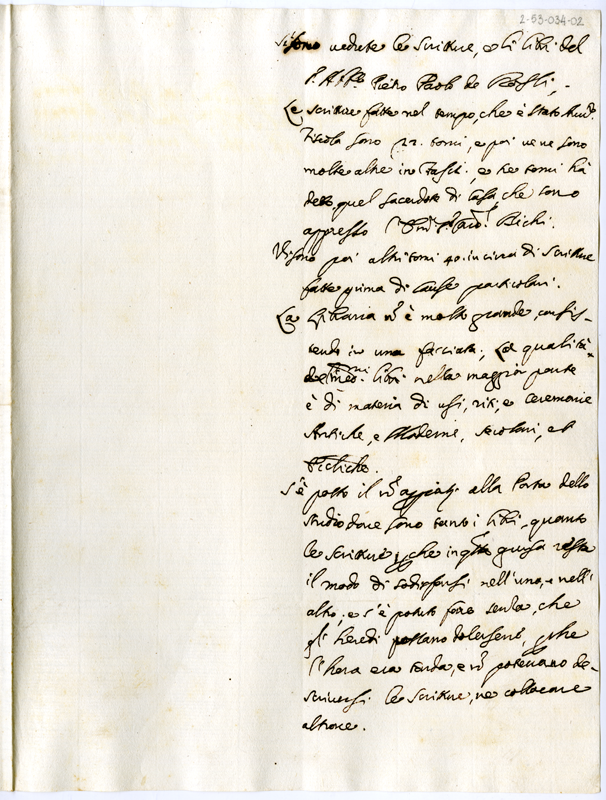 2-53-034-02
Si sono vedute le scritture, e li libri del
Pietro Paolo de Rossi,
Le scritture fatte nel tempo, che è stato
sono 22. tomi, e poi ve ne sono
molte altre in fasci. e tre tomi hà
detto quel sacerdote di Casa che sono
appresso Bichi.
Vi sono poi altri tomi 40. in circa di scritture
fatte prima di cause particolari.
La libraria nõ è molto grande, consis-
tendo in una facciata; La qualità
libri nella maggior parte
è di materia di usi, riti, e ceremonie
Antiche, e Moderne, secolari, et

S'è posto il alla Porta dello
studio dove sono tanti libri, quanto
le scritture, che in guisa resta
il modo di sodisfarsi nell'uno, e nell'
altro, e s'è potuto fare senza, che
gl'heredi possano dolersene, perche
l'hora era tarda, e nõ potevano de-
scriversi le scritture, ne collocare
altrove.